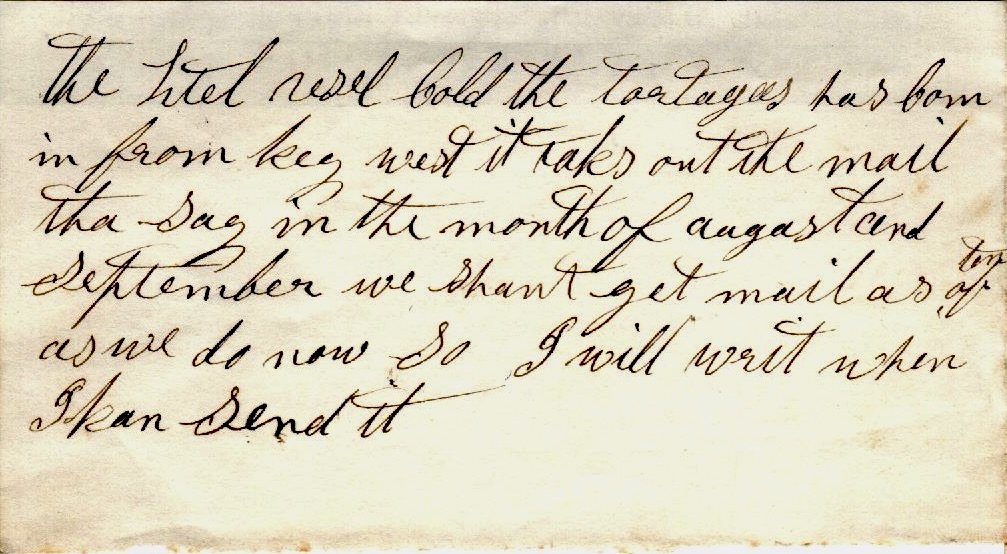 the litel vesel Cold the tortagas has Com
in from key west it taks out the mail
tha Say in the month of august and
September we shant get mail as often
as we do now So I will writ when
I kan Send it